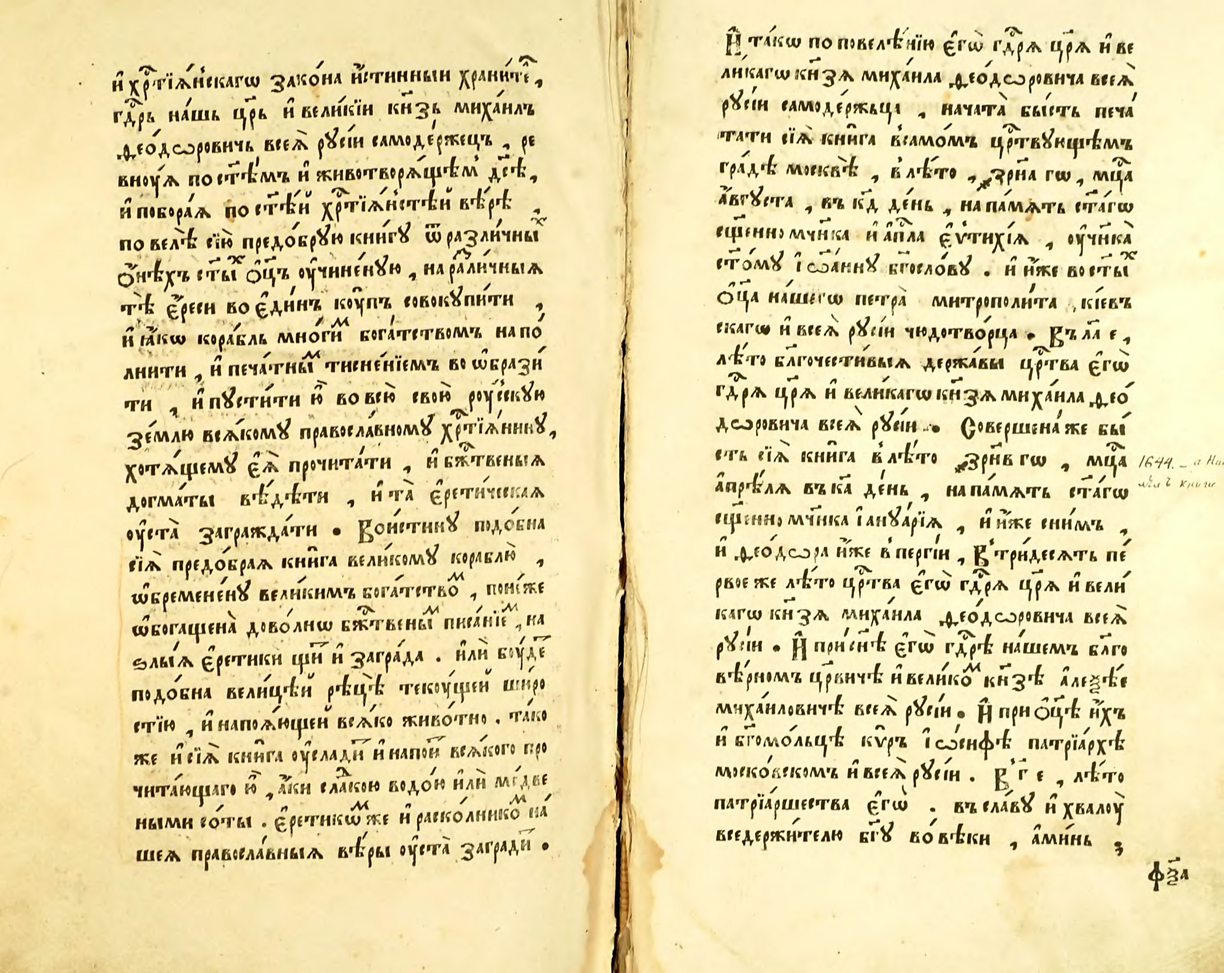 и҆ хрⷭ҇тїѧ́нскагѡ зако́на и҆́стинныи храни́те,
гдⷭ҇рь на́шь цр҃ь и҆ вели́кїи кн҃зь миха́илъ
ѳео́дѡровичь всеѧ̀ рꙋсі́и самоде́ржецъ, ре
внꙋ́ѧ по ст҃ѣ́мъ и҆ животворѧ́щѣм дс҃ѣ,
и҆ побора́ѧ по ст҃ѣ́й хрⷭ҇тїѧ́нстѣй вѣ́рѣ,
по велѣ̀ сїю̀ предо́брꙋю кни́гꙋ ѿ разли́чныⷯ
ѻ҆́нѣхъ ст҃ыⷯ ѻ҆ц҃ъ ᲂу҆чине́нꙋю, на разли́чныѧ
тѣ̀ є҆́реси во є҆ди́нъ кꙋ́пъ совокꙋпи́ти,
и҆ ꙗ҆́кѡ кора́бль мно́гиⷨ бога́тствомъ напо́
лнити, и҆ печа́тныⷨ тисне́нїемъ во ѡ҆брази́
ти, и҆ пꙋсти́ти ю҆̀ во всю̀ свою̀ роу́сскꙋю
зе́млю всѧ́комꙋ правосла́вномꙋ хрⷭ҇тїѧ́нинꙋ,
хотѧ́щемꙋ є҆ѧ̀ прочита́ти, и҆ бж҃твеныѧ
догма́ты вѣ́дѣти, и҆ та̀ є҆рети́ческаѧ
ᲂу҆ста̀ загражда́ти. Вои́стинꙋ подо́бна
сїѧ̀ предо́браѧ кни́га вели́комꙋ кораблю̀,
ѡ҆бремене́нꙋ вели́кимъ бога́тствоⷨ, поне́же
ѡ҆богащена̀ дово́лнѡ бж҃твеныⷨ писа́нїеⷨ, на
ѕлы́ѧ є҆ретики щи́т и҆ загра́да. и҆лѝ бꙋ́де
подо́бна вели́цѣй рѣ́цѣ текꙋ́щей широ
стїю, и҆ напоѧ́ющей всѧ́ко живо́тно. та́ко
же и҆ сїѧ̀ кни́га ᲂу҆слади́т и҆ напои́т всѧ́кого про
чита́ющаго ю҆̀, а҆́ки сла́ткою водо́ю и҆лѝ медве
ными со́ты. є҆ретикѡ́ⷨ же и҆ раско́лникоⷨ на́
шеѧ правосла́вныѧ вѣ́ры ᲂу҆ста̀ загради́т.
И҆ та́кѡ по повелѣ́нїю є҆гѡ̀ гдⷭ҇рѧ цр҃ѧ и҆ ве
ли́кагѡ кн҃зѧ миха́ила ѳео́дѡровича всеѧ̀
рꙋсі́и самоде́ржьца, нача́та бы́сть печа́
тати сїѧ̀ кни́га в са́момъ цр҃твꙋющѣмъ
гра́дѣ москвѣ̀, в лѣ́то ҂зрн҃а гѡ, мц҃а
а҆́вгꙋста, въ к҃д де́нь, на па́мѧть ст҃а́гѡ
сщ҃енномч҃ика и҆ а҆пⷭ҇ла є҆ѵти́хїѧ, ᲂу҆чн҃ика̀
ст҃о́мꙋ і҆ѡа́ннꙋ бг҃осло́вꙋ. и҆ и҆́же во ст҃ы́ⷯ
ѻ҆ц҃а на́шегѡ петра̀ митрополи́та кі́евъ
скагѡ и҆ всеѧ̀ рꙋсі́и чюдотво́рца. Въ л҃а е,
лѣ́то бл҃гочести́выѧ держа́вы цр҃тва є҆гѡ̀
гдⷭ҇рѧ цр҃ѧ и҆ вели́кагѡ кн҃зѧ миха́ила ѳео́
дѡровича всеѧ̀ рꙋсі́и. Соверше́на же бы́
сть сїѧ̀ кни́га в лѣ́то ҂зрн҃в гѡ, мц҃а
а҆прѣ́лѧ въ к҃а де́нь, на па́мѧть ст҃а́гѡ
сщ҃енномч҃ика і҆аннꙋа́рїѧ, и҆ и҆́же с ни́мъ,
и҆ ѳео́дѡра и҆́же в пергі́и, В три́десѧть пе́
рвое же лѣ́то цр҃тва є҆гѡ̀ гдⷭ҇рѧ цр҃ѧ и҆ вели́
кагѡ кн҃зѧ миха́ила ѳео́дѡровича всеѧ̀
рꙋсі́и. И҆ при сн҃ѣ є҆гѡ̀ гдⷭ҇рѣ на́шемъ бл҃го
вѣ́рномъ цр҃вичѣ и҆ вели́коⷨ кн҃зѣ а҆леѯѣ́е
миха́иловичѣ всеѧ̀ рꙋсі́и. И҆ при ѻ҆ц҃ѣ и҆́хъ
и҆ бг҃омо́льцѣ кѵ́ръ і҆ѡ́сифѣ патрїа́рхѣ
моско́вскомъ и҆ всеѧ̀ рꙋсі́и. В г҃ е, лѣ́то
патрїа́ршества є҆гѡ̀. въ сла́вꙋ и҆ хвалꙋ̀
вседержи́телю бг҃ꙋ во вѣ́ки, а҆ми́нь;
1644.
фѯ҃а